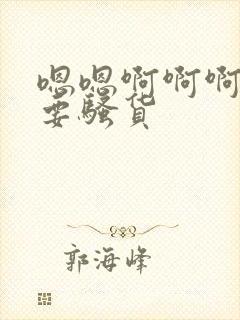 嗯嗯啊啊啊
要骚货
郭海峰